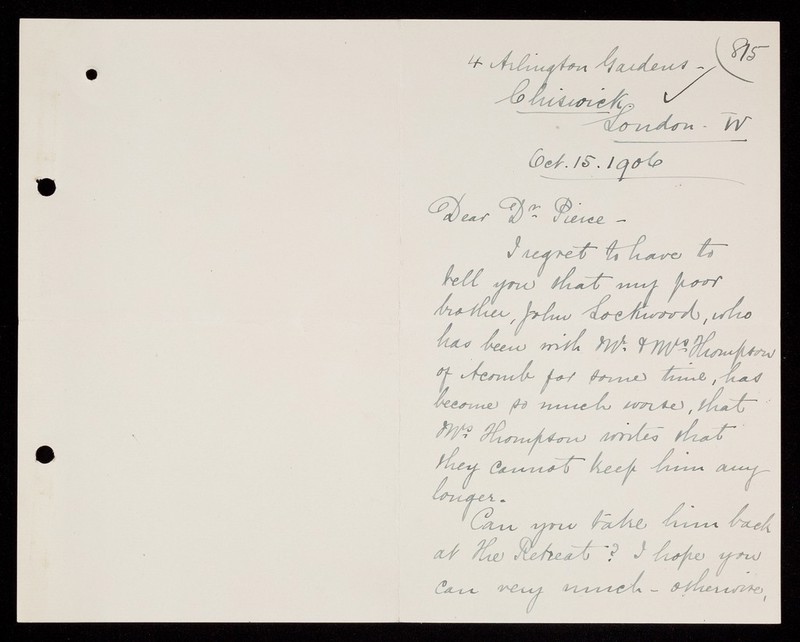 815
4 Arlington Gardens -
Chiswick
London. W
Oct. 15. 1906
Dear Dr. Pierce -
I regret to have to
tell you that my poor
brother, John Lockwood, who
has been with Mr. & Mrs. Thompson
of Acomb for some time, has
become so much worse, that
Mrs. Thompson writes that
they cannot keep him any
longer.
Can you take him back
at the Retreat? I hope you
can very much - otherwise,